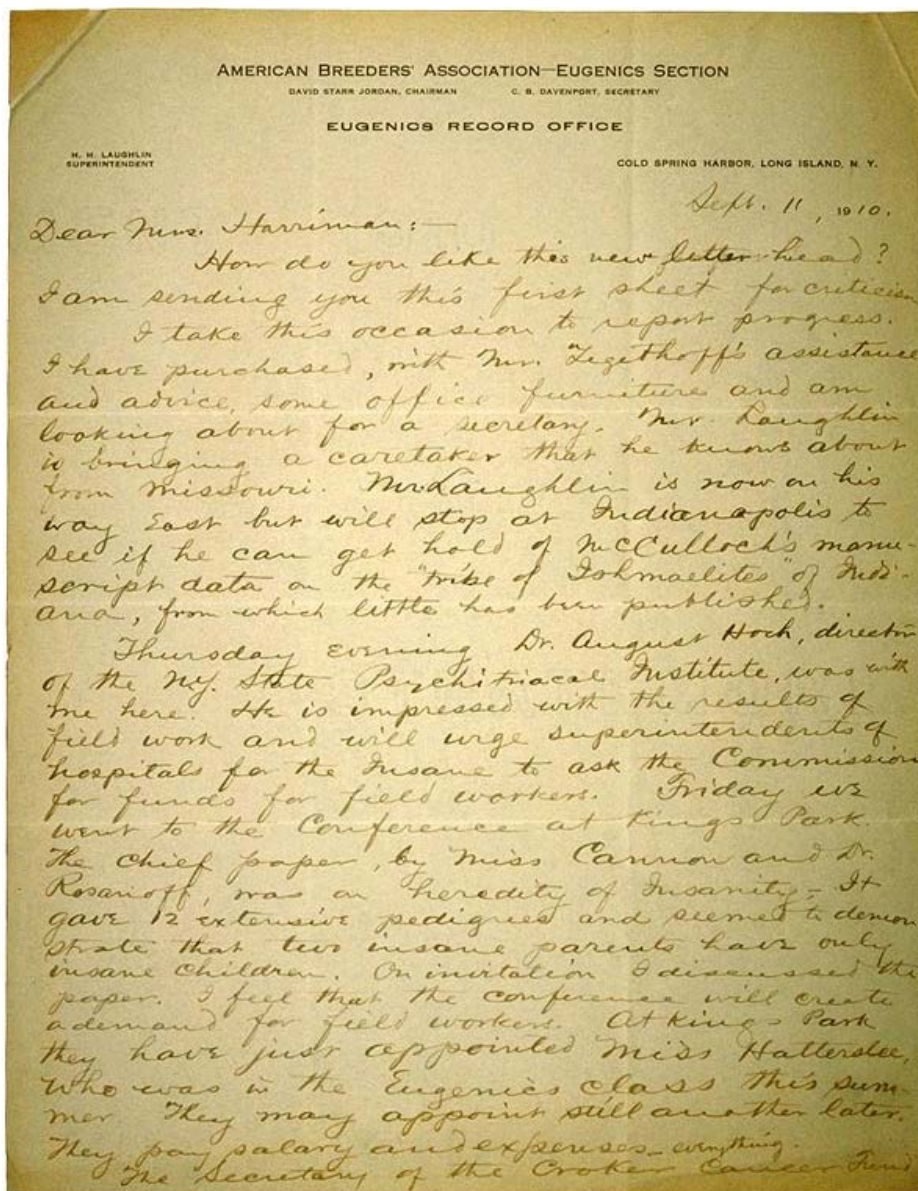 AMERICAN BREEDERS' ASSOCIATION—EUGENICS SECTION
DAVID STARR JORDAN, CHAIRMAN C. B. DAVENPORT, SECRETARY
EUGENICS RECORD OFFICE
H. H. LAUGHLIN
SUPERINTENDENT
COLD SPRING HARBOR, LONG ISLAND, N. Y.
Sept. 11, 1910.
Dear Mrs. Harriman:—
How do you like this new letter head?
I am sending you this first sheet for criticism
I take this occasion to report progress.
I have purchased, with Mr. Tegethoff's assistance
and advice, some office furniture and am
looking about for a secretary. Mr. Laughlin
is bringing a caretaker that he knows about
from Missouri. Mr Laughlin is now on his
way East but will stop at Indianapolis to
see if he can get hold of McCulloch's manu-
script data on the "tribe of Ishmaelites" of Indi-
ana, from which little has been published.
Thursday evening Dr. August Hoch, director
of the N.Y. State Psychitriacal Institute, was with
me here. He is impressed with the results of
field work and will urge superintendents of
hospitals for the Insane to ask the Commission
for funds for field workers. Friday we
went to the Conference at Kings Park.
The chief paper, by Miss Cannon and Dr.
Rosanoff, was on heredity of Insanity – It
gave 12 extensive pedigrees and seemed to demon
strate that two insane parents have only
insane children. On invitation I discussed the
paper. I feel that the conference will create
a demand for field workers. At Kings Park
they have just appointed Miss Hatterslee,
who was in the Eugenics class this sum-
mer. They may appoint still another later.
They pay salary and expenses – everything.
The Secretary of the Croker Cancer Fund